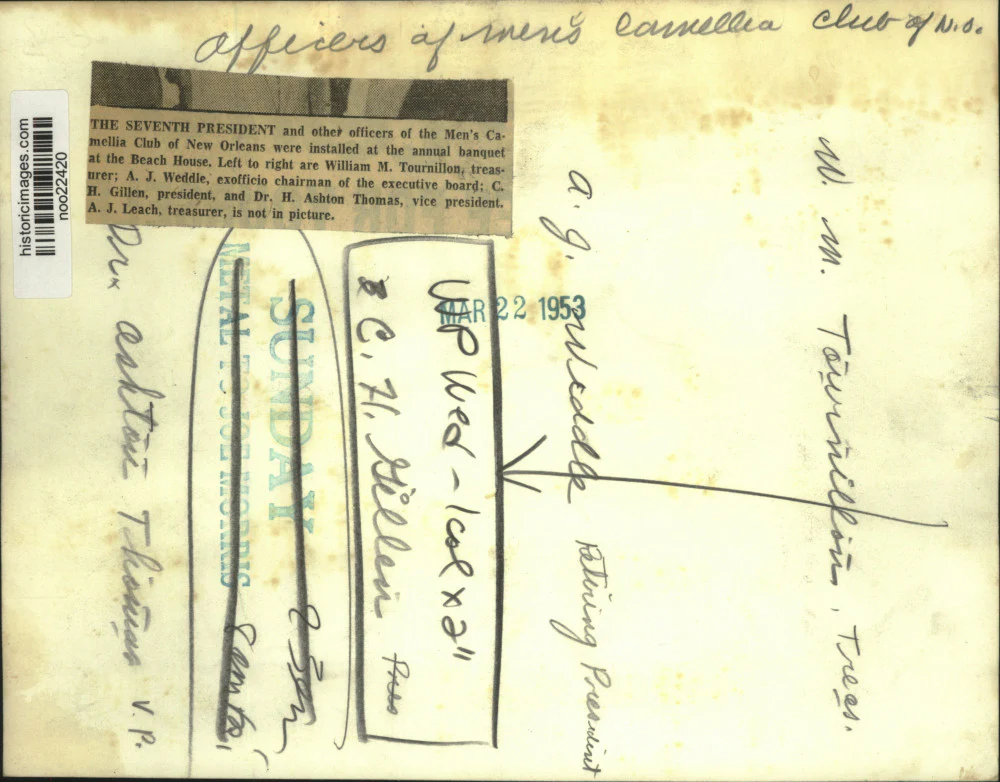 officers of men's Camellia Club of N.O.
THE SEVENTH PRESIDENT and other officers of the Men's Ca-
mellia Club of New Orleans were installed at the annual banquet
at the Beach House. Left to right are William M. Tournillon, treas-
urer; A. J. Weddle, exofficio chairman of the executive board; C.
H. Gillen, president, and Dr. H. Ashton Thomas, vice president.
A. J. Leach, treasurer, is not in picture.
historicimages.com
noo22420
W. M. Tournillon, Treas.
A. J. Weddle Retiring President
MAR 22 1953
UP Wed - 1 col x 2"
C. H. Gillen Pres
SUNDAY
METAL TO JOE MORRIS
Dr. Ashton Thomas V.P.